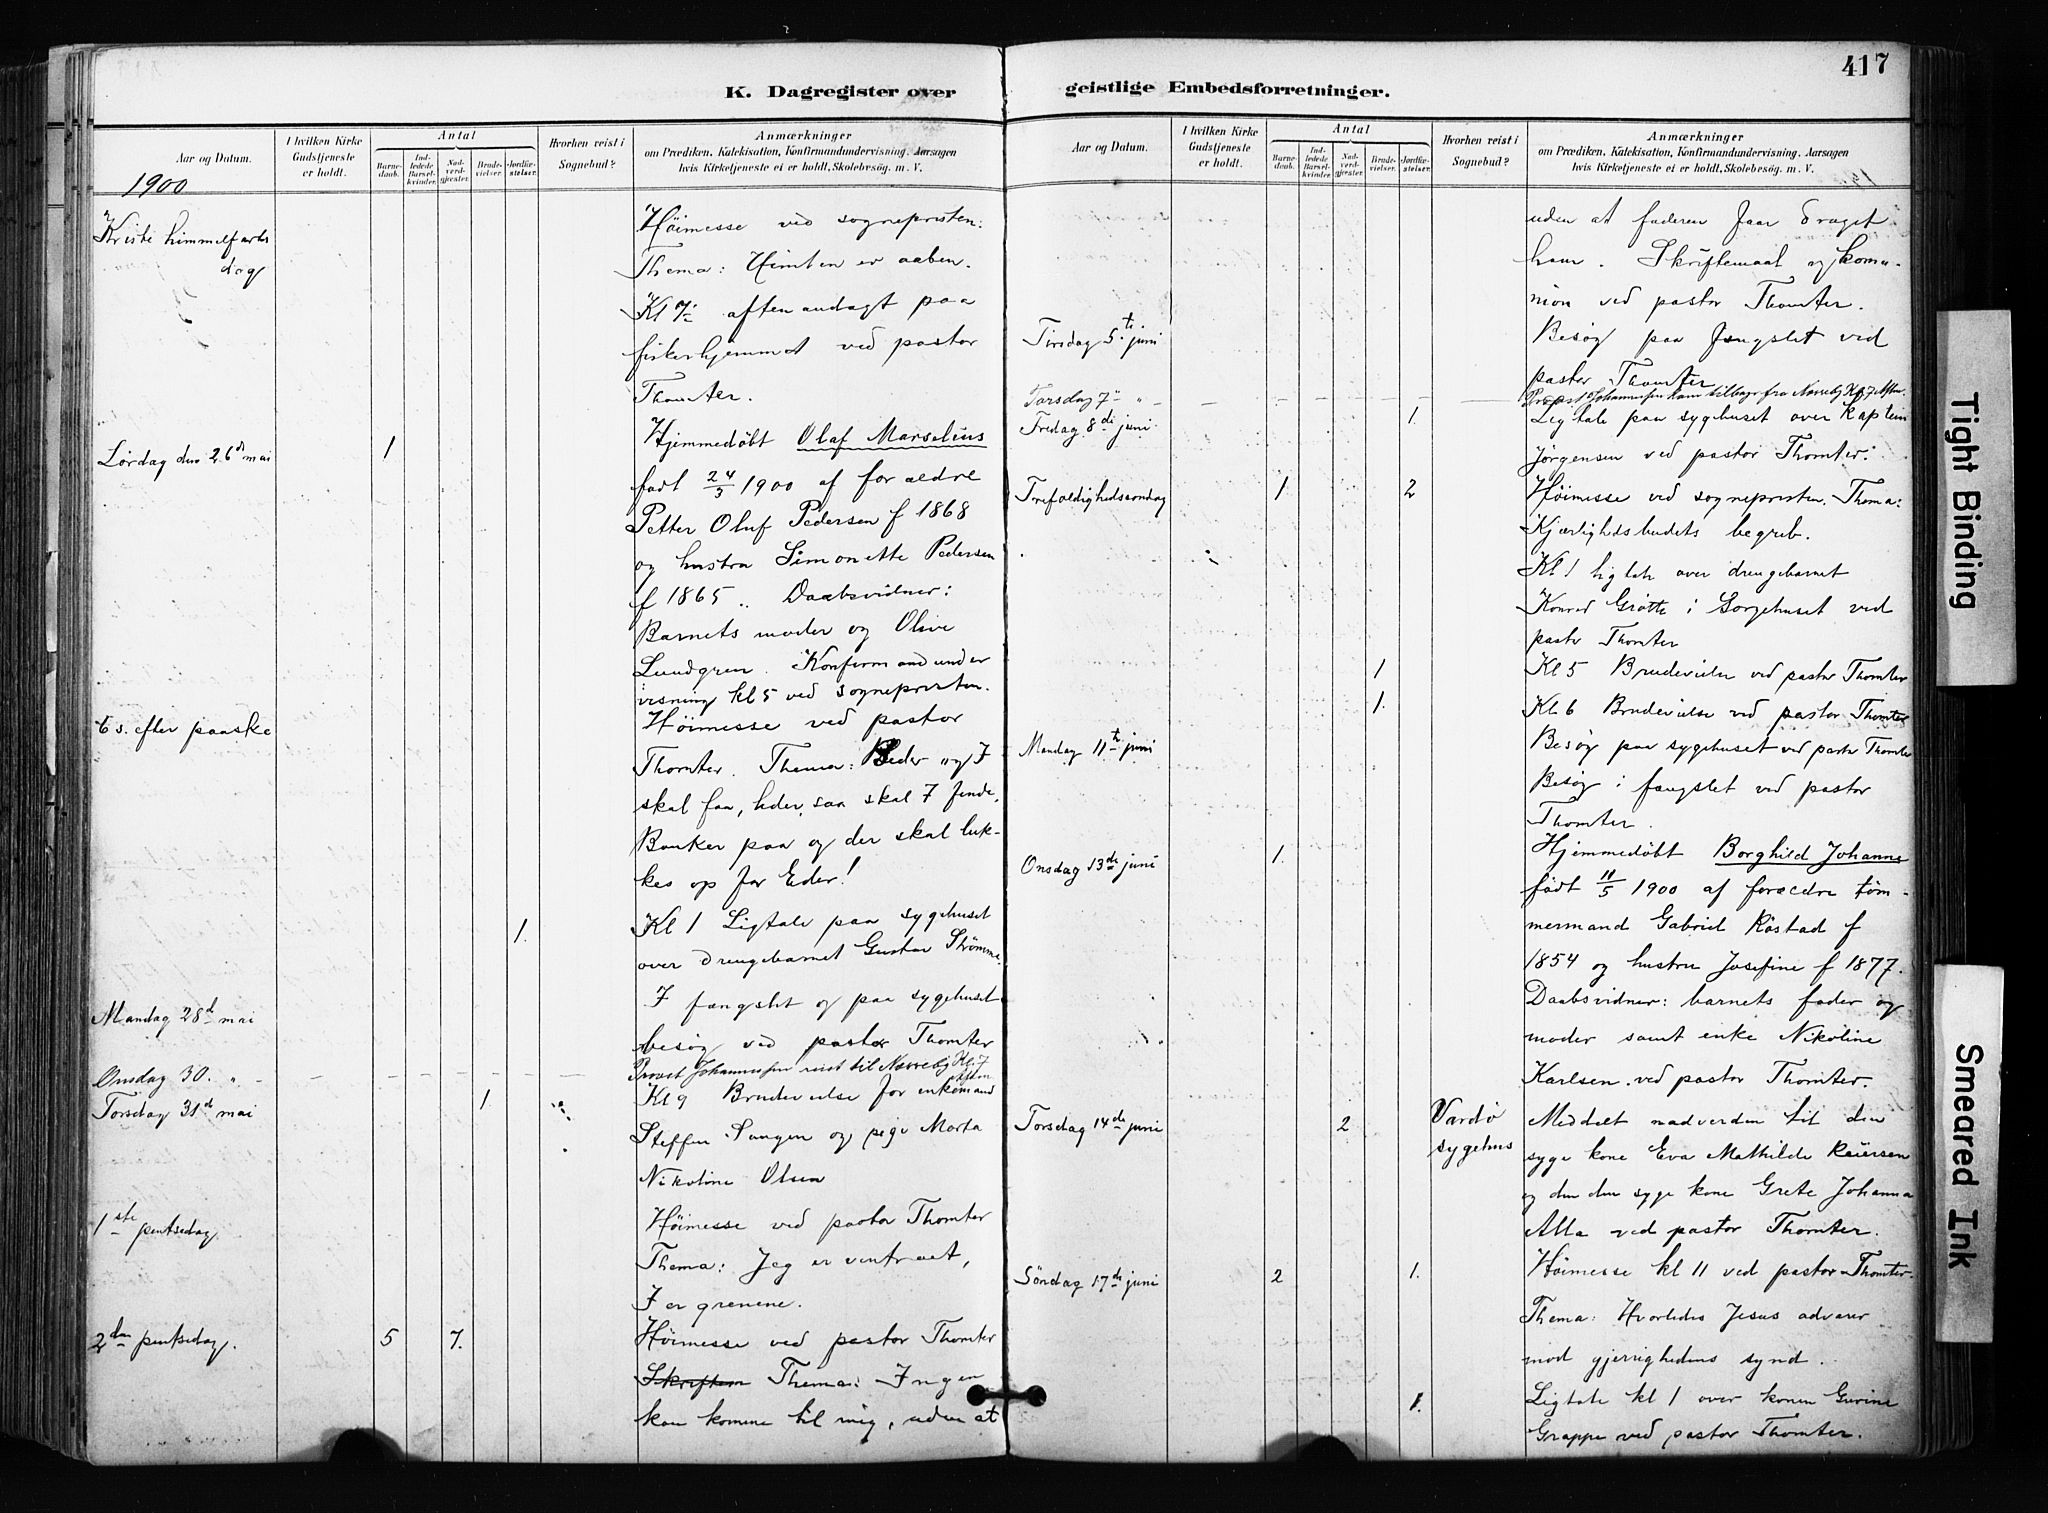 417
K. Dagregister over geistlige Embedsforretninger.
Aar og Datum.
I hvilken Kirke Gudstjeneste er holdt.
Antal
Barnedaab.
Indledede Barselkvinder.
Nadverdgjester.
Brudevielser.
Jordfæstelser.
Hvorhen reist i Sognebud?
Anmærkninger
om Prædiken, Katekisation, Konfirmandundervisning, Aarsagen
hvis Kirketjeneste ei er holdt, Skolebesøg. m. V.
1900
Kristi himmelfarts
dag
Høimesse ved sognepresten:
Thema: Himlen er aaben.
Kl 7 aftenandagt paa
fiskerhjemmet ved pastor
Thomter.
Lørdag den 26d mai
1
Hjemmedøbt Olaf Marselius
født 24/3 1900 af forældre
Petter Oluf Pedersen f 1868
og hustru Simonette Pedersen
f 1865 .. Daabsvidner:
Barnets moder og Olive
Lundgren. Konfirmandunder
visning kl 5 ved sognepresten.
6 s. efter paaske
Høimesse ved pastor
Thomter. Thema: Beder og I
skal faa, leder, saa skal I finde,
Banker paa og der skal luk-
kes op for Eder!
1.
Kl 1 Ligtale paa sygehuset
over drengebarnet Gustav Strømme.
Mandag 28d mai
I fængslet og paa sygehuset
besøg ved pastor Thomter
Onsdag 30. " - - - - - - -
Provst Johannessen reist til Næsseby Kl. 7 Aften
Torsdag 31d mai
1.
Kl 9 Brudevielse for enkemand
Steffen Sangen og pige Marta
Nikoline Olsen
1ste pentsedag.
Høimesse ved pastor Thomter
Thema: Jeg er vintræet,
I er grenene.
2den pentsedag.
5 7.
Høimesse ved pastor Thomter
Skriftem Thema: Ingen
kan komme til mig, uden at
Aar og Datum.
I hvilken Kirke Gudstjeneste er holdt.
Antal
Barnedaab.
Indledede Barselkvinder.
Nadverdgjester.
Brudevielser.
Jordfæstelser.
Hvorhen reist i Sognebud?
Anmærkninger
om Prædiken, Katekisation, Konfirmandundervisning, Aarsagen
hvis Kirketjeneste ei er holdt, Skolebesøg. m. V.
uden at faderen faar draget
ham. Skriftemaal og komu-
nion ved pastor Thomter.
Tirsdag 5.te juni
Besøg paa fængslet ved
pastor Thomter
Torsdag 7" " - - - - - - -
Provst Johannessen kom tilbage fra Næsseby Kl. 7 Aften.
Fredag 8di juni
1.
Ligtale paa sygehuset over kaptein
Jørgensen ved pastor Thomter.
Trefoldighedssøndag
1. 2
Høimesse ved sognepresten. Thema:
Kjærlighedsbudets begreb.
Kl 1 ligtale over drengebarnet
Konrad Grøtte i Sorgehuset ved
pastor Thomter
1
Kl 5 Brudevielse ved pastor Thomter
1.
Kl 6 Brudevielse ved pastor Thomter
Mandag 11te juni
Besøg paa sygehuset ved pastor Thomter
Besøg i fængslet ved pastor
Thomter.
Onsdag 13de juni
1.
Hjemmedøbt Borghild Johanne
født 11/5 1900 af forældre tøm-
mermand Gabriel Røstad f
1854 og hustru Josefine f 1877.
Daabsvidner: barnets fader og
moder samt enke Nikoline
Karlsen. ved pastor Thomter.
Torsdag 14de juni
2
Vardø
sygehus
Meddelt nadverden til den
syge kone Eva Mathilde Reiersen
og den den syge kone Grete Johanna
Alla ved pastor Thomter.
Søndag 17de juni
2 1.
Høimesse kl 11 ved pastor Thomter.
Thema: Hvorledes Jesus advarer
mod gjerrighedens synd.
1.
Ligtale kl 1 over konen Gurine
Grappe ved pastor Thomter.
Tight Binding
Smeared Ink